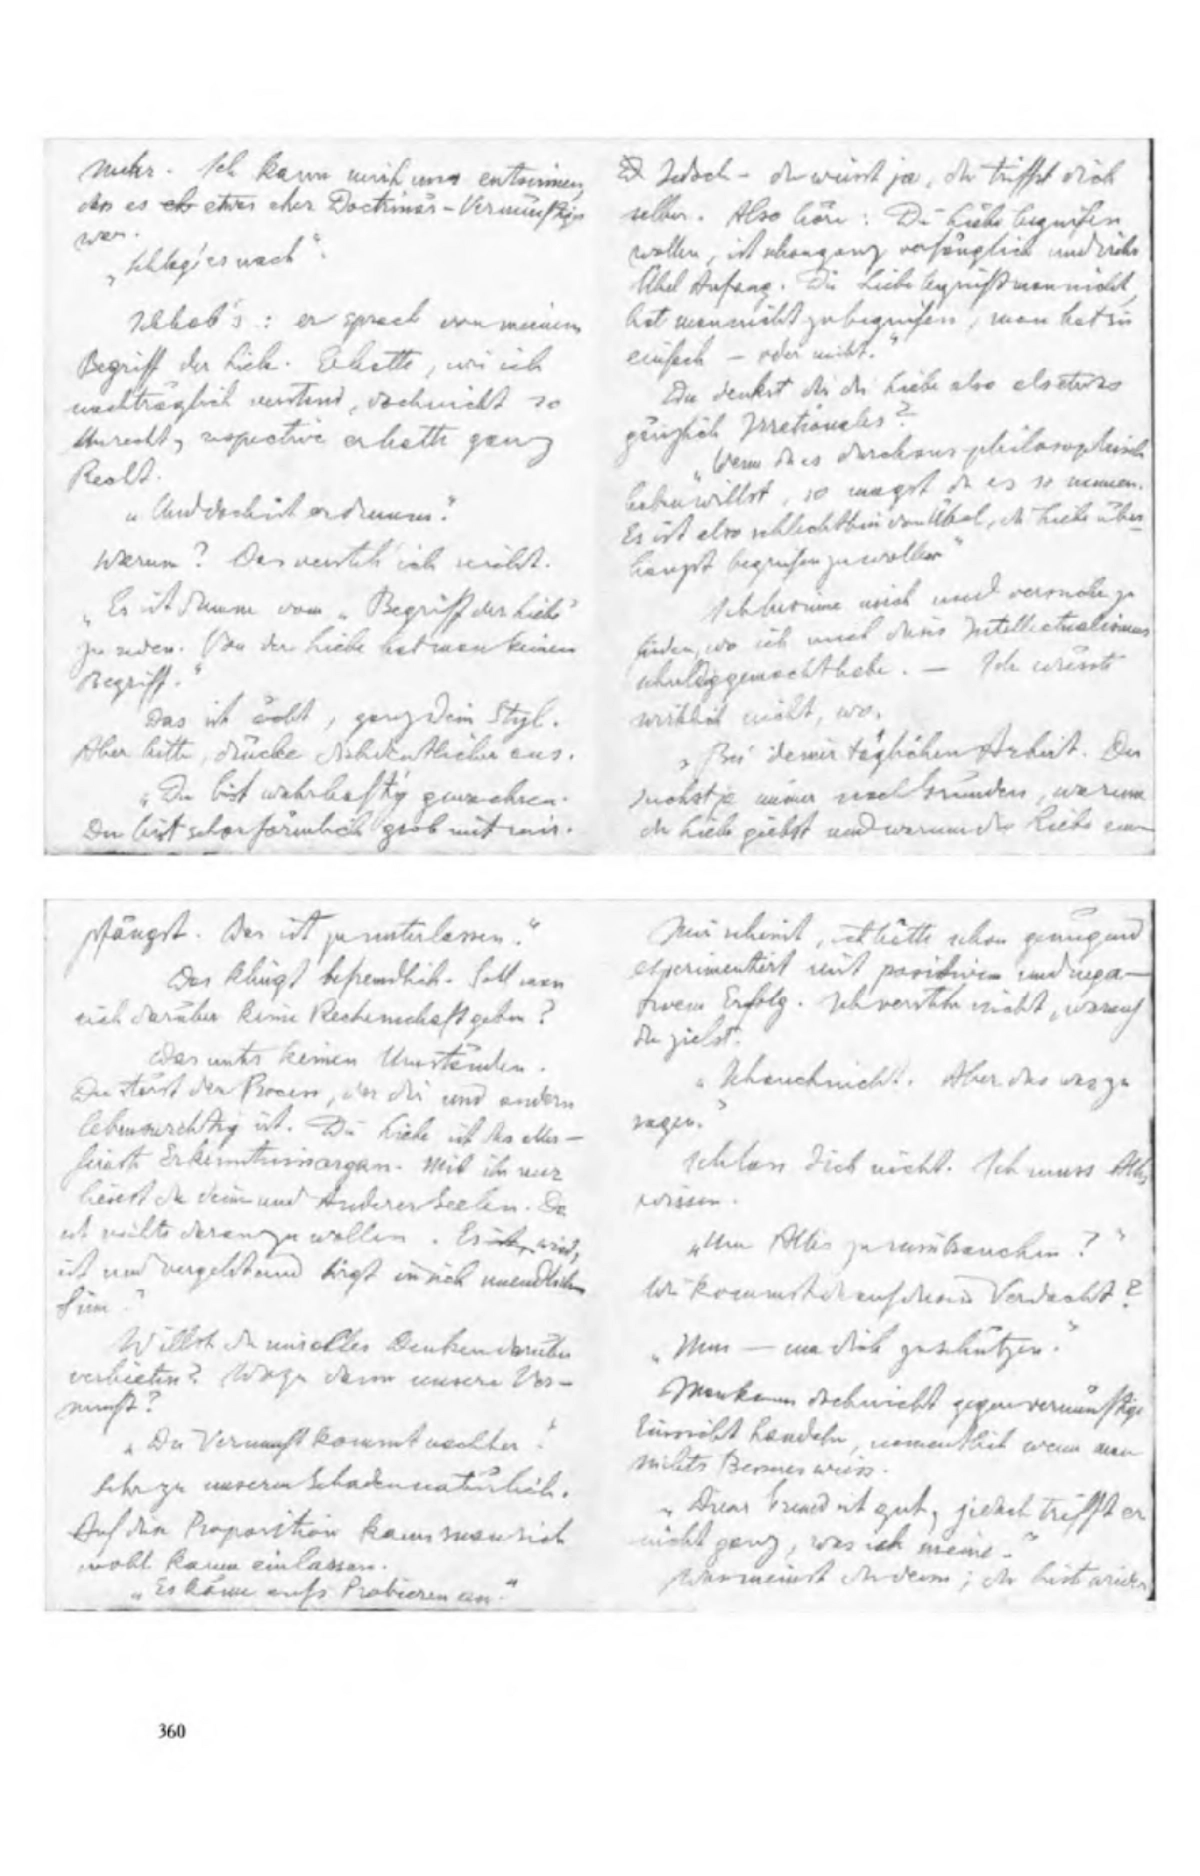 mehr. Ich kann mich nur entsinnen,
dass es eh etwas eher Doctrinär-Vernünftiges
war.
„Schlag' es nach".
Ich hab's: er sprach von meinem
Begriff der Liebe. Er hatte, wie ich
nachträglich verstand, doch nicht so
Unrecht, respective er hatte ganz
Recht.
„Und doch ist er dumm."
Warum? Das versteh' ich nicht.
„Es ist dumm vom „Begriff der Liebe"
zu reden. Von der Liebe hat man keinen
Begriff."
Das ist ächt, ganz Dein Styl.
Aber bitte, drücke dich deutlicher aus.
„Du bist wahrhaftig gewachsen.
Du bist schon förmlich grob mit mir.
Jedoch – du weisst ja, du triffst dich
selber. Also höre: Die Liebe begreifen
wollen, ist schon ganz verfänglich und
Übel Anfang. Die Liebe begreift man nicht,
hat man nicht zu begreifen, man hat sie
einfach – oder nicht."
Du denkst dir die Liebe also als etwas
gänzlich Irrationales?
„Wenn du es durchaus philosophisch
haben willst, so magst du es so nennen.
Es ist also schlechthin von Übel, die Liebe über-
haupt begreifen zu wollen"
Ich besinne mich und versuche zu
finden, wo ich mich dieses Intellectualismus
schuldig gemacht habe. — Ich wüsste
wirklich nicht, wo.
„Bei deiner täglichen Arbeit. Du
suchst ja immer nach Gründen, warum
du Liebe giebst und warum du Liebe em-
pfängst. Das ist zu unterlassen."
Das klingt befremdlich. Soll man
sich darüber keine Rechenschaft geben?
Das unter keinen Umständen.
Du störst den Process, der dir und andern
lebenswichtig ist. Die Liebe ist das aller-
feinste Erkenntnissorgan. Mit ihr nur
liesest du deine und Anderer Seelen. Da
ist nichts daran zu wollen. Es ist, wird,
ist und vergeht und birgt in sich unendlichen
Sinn."
Willst du mir alles Denken darüber
verbieten? Wozu dann unsere Ver-
nunft?
„Die Vernunft kommt nachher."
Sehr zu unserem Schaden natürlich.
Auf diese Proposition kann man sich
wohl kaum einlassen.
„Es käme aufs Probieren an."
Mir scheint, ich hätte schon genügend
experimentiert mit positivem und nega-
tivem Erfolg. Ich verstehe nicht, worauf
du zielst.
„Ich auch nicht. Aber das was zu
sagen."
Ich lass dich nicht. Ich muss Alles
wissen.
„Um Alles zu missbrauchen?"
Wie kommst du auf diesen Verdacht?
„Nun — um dich zu schützen."
Man kann doch nicht gegen vernünftige
Einsicht handeln, namentlich wenn man
nichts Besseres weiss.
„Dieser Grund ist gut, jedoch trifft er
nicht ganz, was ich meine."
Was meinst du denn; du bist wieder
360